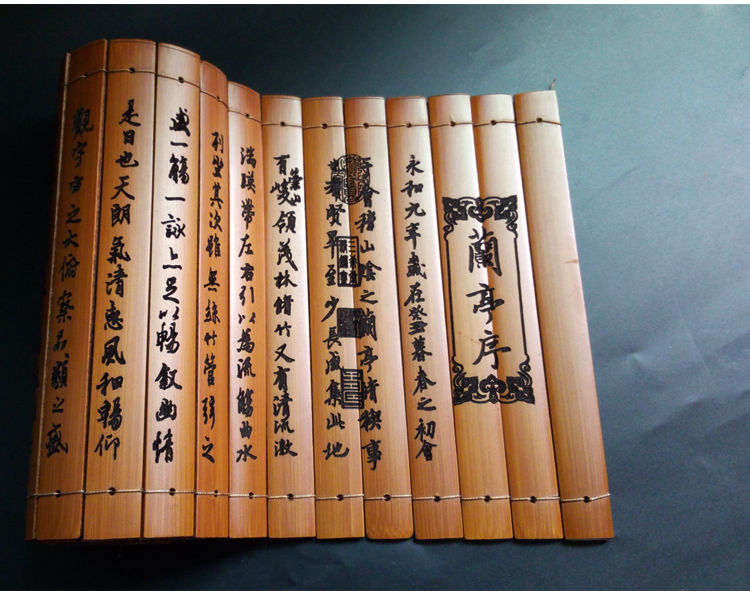 蘭亭序
永和九年歲在癸丑暮春之初會
于會稽山陰之蘭亭脩稧事
也羣賢畢至少長咸集此地
有崇山峻領茂林脩竹又有清流激
湍暎帶左右引以為流觴曲水
列坐其次雖無絲竹管弦之
盛一觴一詠亦足以暢敘幽情
是日也天朗氣清惠風和暢仰
觀宇宙之大俯察品類之盛